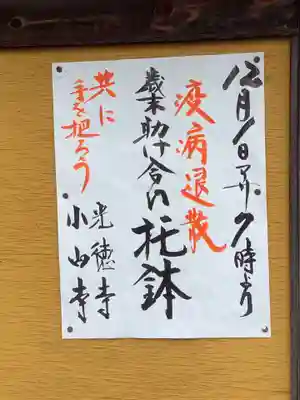 12月1日早朝7時より
疫病退散
歳末助け合い托鉢
共に
手を把ろう
光徳寺
小山寺